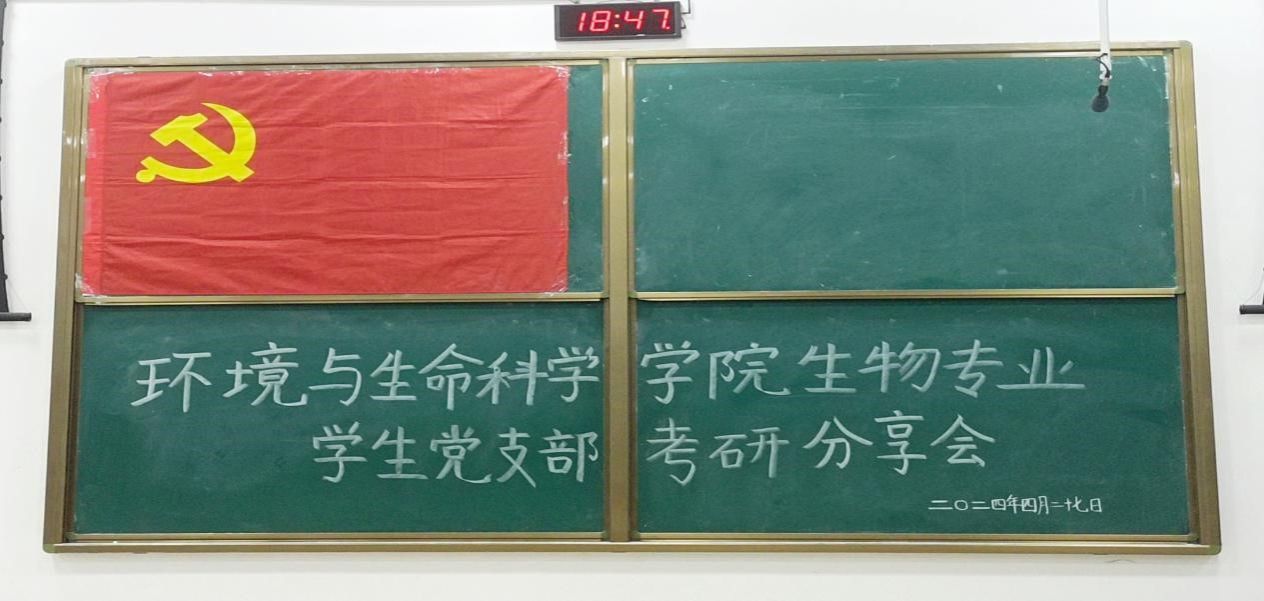 18:47
环境与生命科学学院生物专业
学生党支部考研分享会
二〇二四年四月二十七日